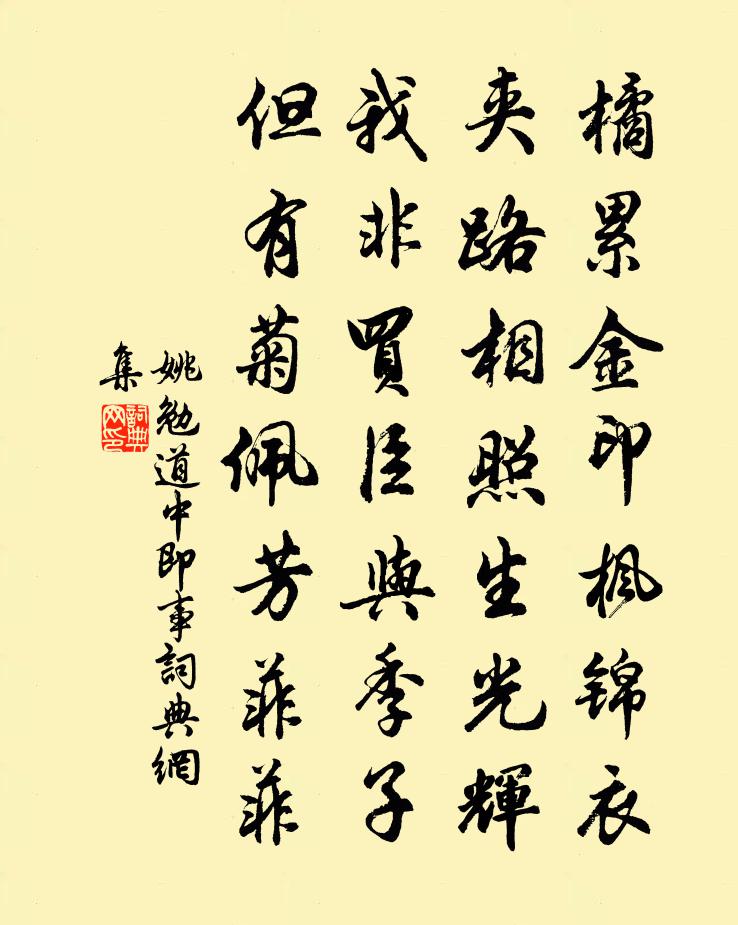 橘累金印枫锦衣
夹路相照生光輝
我非買臣與季子
但有菊佩芳菲菲
姚勉道中即事詞典網
集
詞典
网印